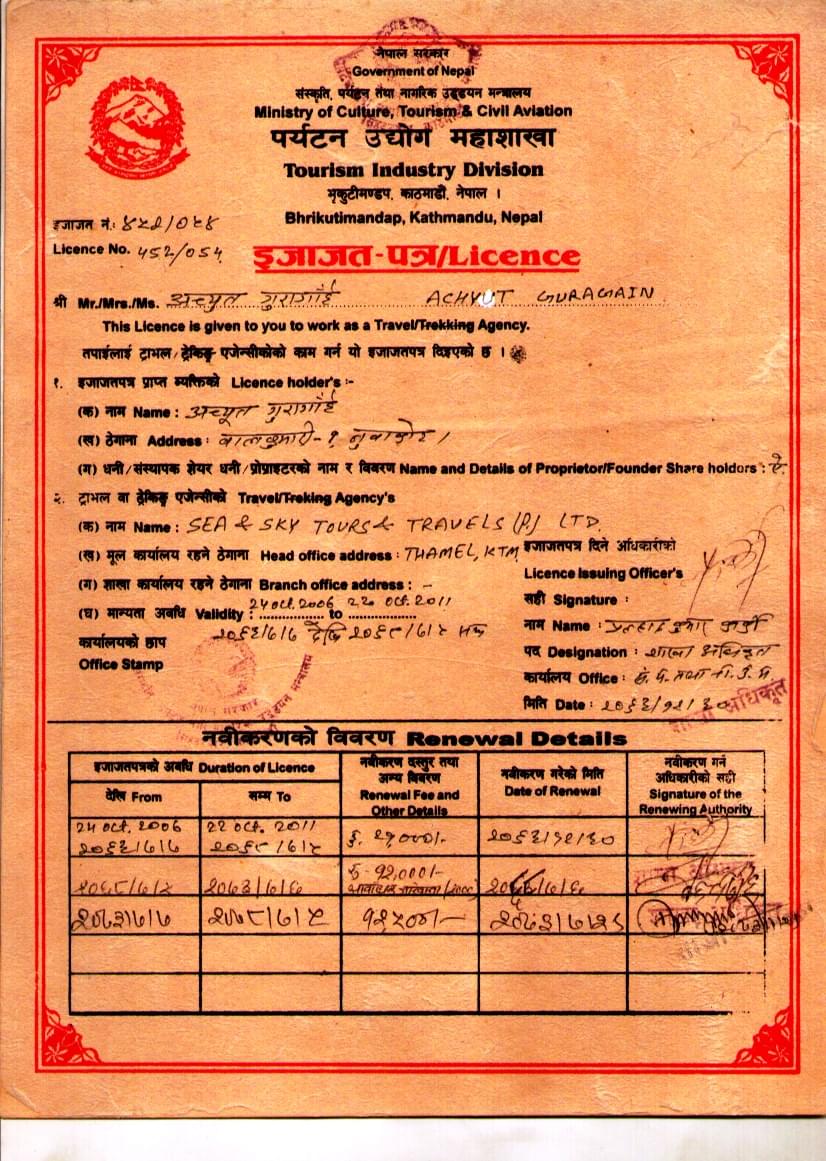 नेपाल सरकार
Government of Nepal
संस्कृति, पर्यटन तथा नागरिक उड्डयन मन्त्रालय
Ministry of Culture, Tourism & Civil Aviation
पर्यटन उद्योग महाशाखा
Tourism Industry Division
भृकुटीमण्डप, काठमाडौं, नेपाल ।
Bhrikutimandap, Kathmandu, Nepal
इजाजत नं: ४५२/०५४
Licence No. 452/054
इजाजत-पत्र/Licence
श्री Mr./Mrs./Ms. अच्युत गुरागाईं ACHYUT GURAGAIN
This Licence is given to you to work as a Travel/Trekking Agency.
तपाईलाई ट्राभल/ट्रेकिङ्ग एजेन्सीकोको काम गर्न यो इजाजतपत्र दिइएको छ ।
१. इजाजतपत्र प्राप्त व्यक्तिको Licence holder's :-
(क) नाम Name : अच्यूत गुरागाईं
(ख) ठेगाना Address : बालकुमारी-१ नुवाकोट ।
(ग) धनी/संस्थापक शेयर धनी/प्रोप्राइटरको नाम र विवरण Name and Details of Proprietor/Founder Share holders : ऐ.
२. ट्राभल वा ट्रेकिङ्ग एजेन्सीको Travel/Treking Agency's
(क) नाम Name : SEA & SKY TOURS & TRAVELS (P.) LTD.
(ख) मूल कार्यालय रहने ठेगाना Head office address : THAMEL, KTM
(ग) शाखा कार्यालय रहने ठेगाना Branch office address : -
(घ) मान्यता अवधि Validity : 24 Oct. 2006 to 22 Oct. 2011
२०६३/७/७ देखि २०६८/७/५ सम्म
कार्यालयको छाप
Office Stamp
इजाजतपत्र दिने अधिकारीको
Licence Issuing Officer's
सही Signature :
नाम Name : प्रल्हाद कुमार कार्की
पद Designation : शाखा अधिकृत
कार्यालय Office : सं. प. तथा ना. उ. म
मिति Date : २०६३/१२/३०
शाखा अधिकृत
नवीकरणको विवरण Renewal Details
इजाजतपत्रको अवधि Duration of Licence
देखि From
सम्म To
नवीकरण दस्तुर तथा अन्य विवरण Renewal Fee and Other Details
नवीकरण गरेको मिति Date of Renewal
नवीकरण गर्न अधिकारीको सही Signature of the Renewing Authority
24 Oct. 2006 22 Oct. 2011
२०६३/७/७ २०६८/७/५ रु. २१,०००/- २०६३/१२/३०
२०६८/७/५ २०७३/७/६ रु १२,०००/-
२०७३/७/७ २०७८/७/५ १२५००/-